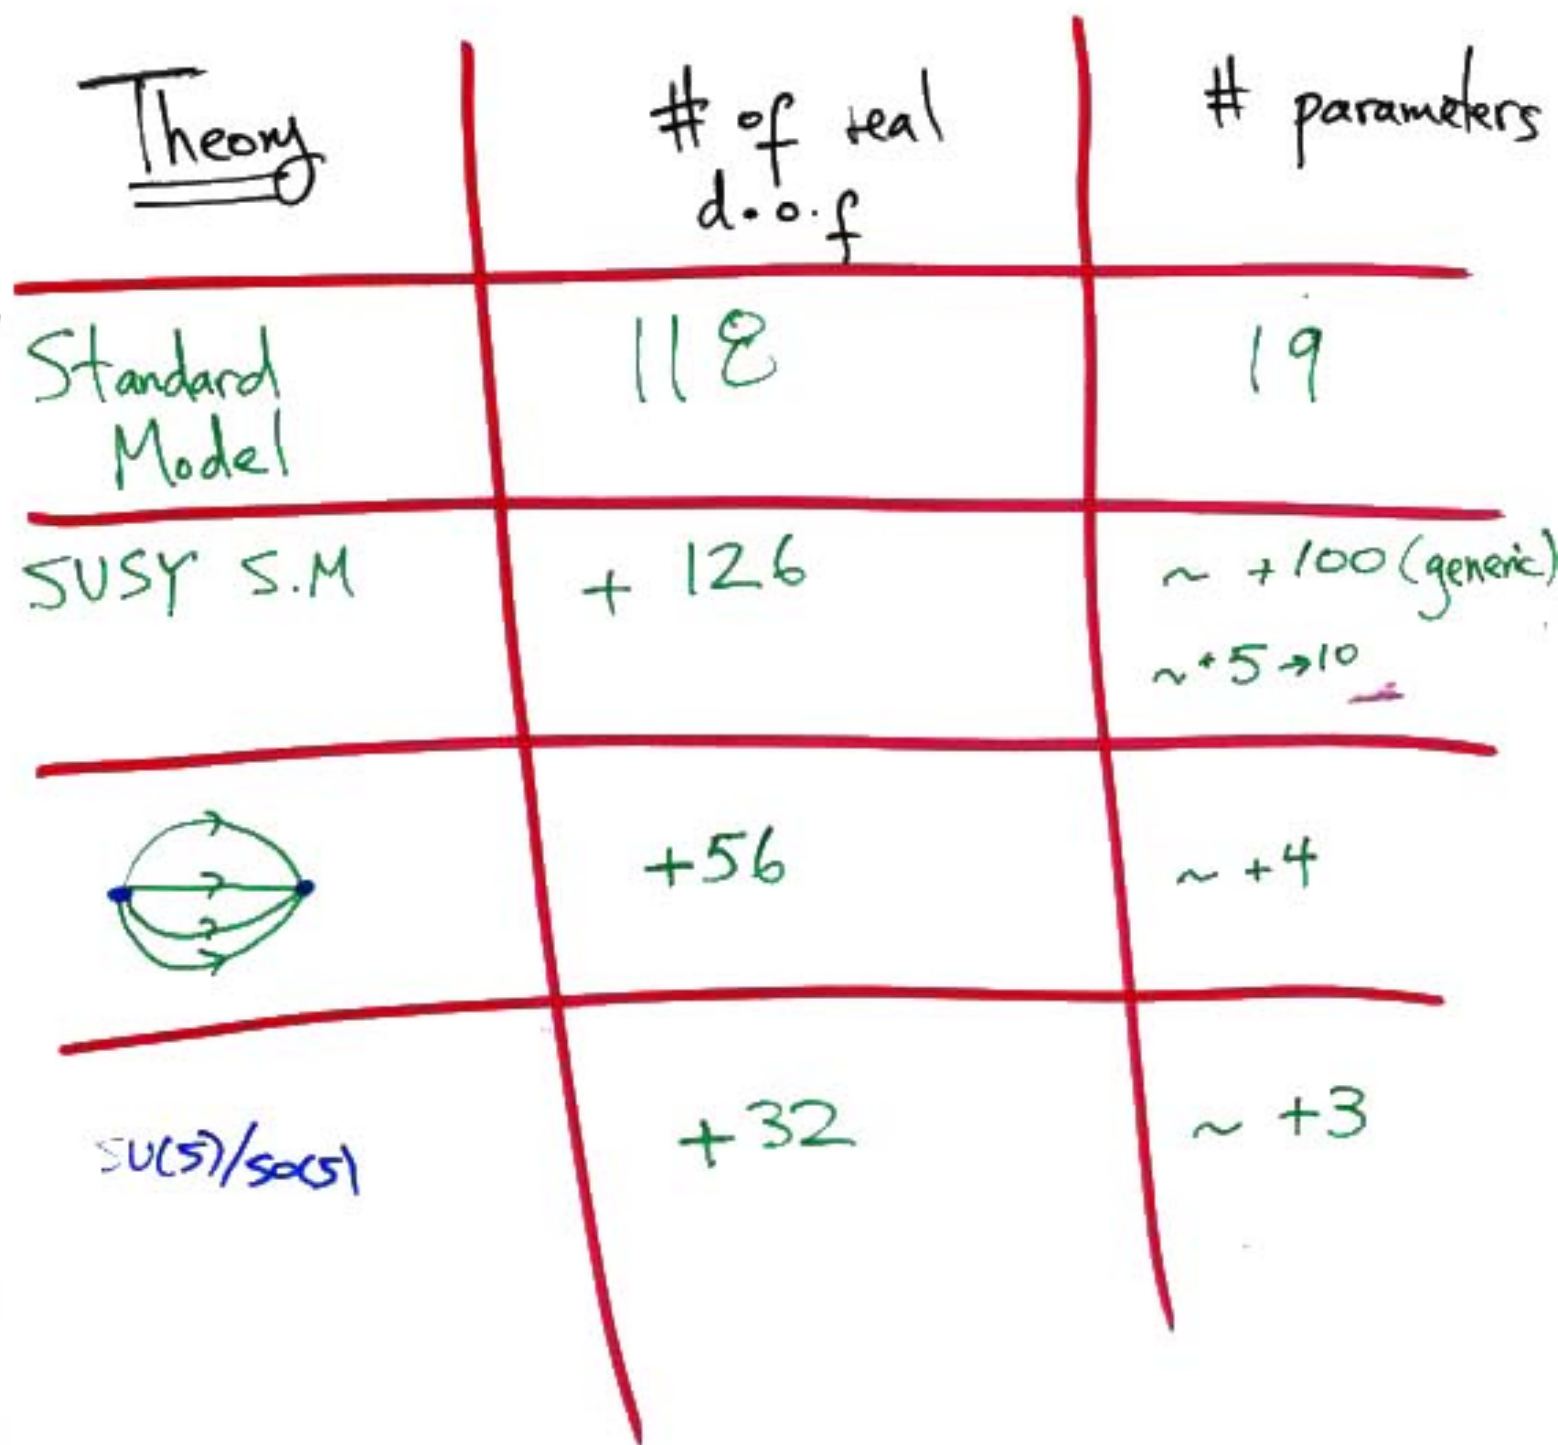 Theory
# of real
d.o.f
# parameters
Standard
Model
118
19
SUSY S.M
+ 126
~ +100 (generic)
~ +5 → 10
+56
~ +4
SU(5)/SO(5)
+32
~ +3